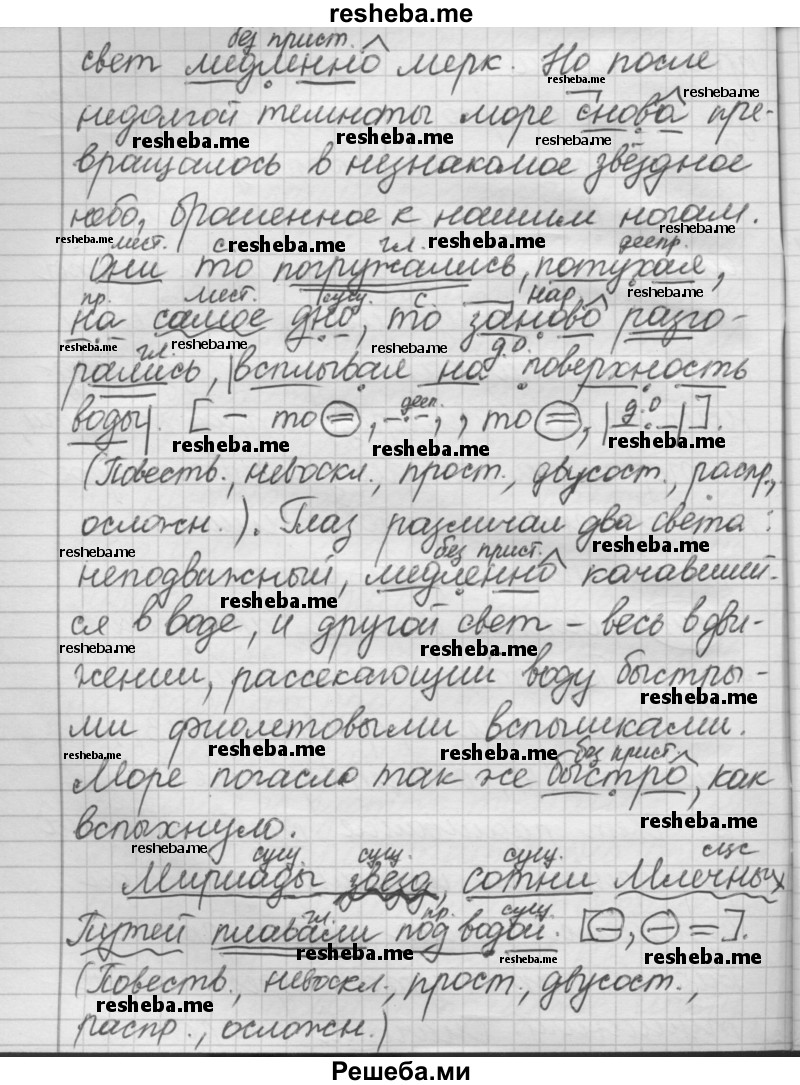 resheba.me
без прист.
свет медленно мерк. Но после
недолгой темноты море снова пре-
вращалось в незнакомое звёздное
небо, брошенное к нашим ногам.
мест. с гл. деепр.
Они то погружались, потухая,
пр. мест. сущ. с нар.
на самое дно, то заново разго-
гл. д.о.
рались, |всплывая на поверхность
воды|. [— то =, дееп., , то =, |д.о|].
(Повеств., невоскл., прост., двусост., распр.,
осложн.). Глаз различал два света:
без прист.
неподвижный, медленно качавший-
ся в воде, и другой свет – весь в дви-
жении, рассекающий воду быстры-
ми фиолетовыми вспышками.
без прист.
Море погасло так же быстро, как
вспыхнуло.
сущ. сущ. сущ. сщс
Мириады звёзд, сотни Млечных
гл. пр. сущ.
Путей плавали под водой. [—, — =].
(Повеств., невоскл., прост., двусост.,
распр., осложн.)
Решеба.ми